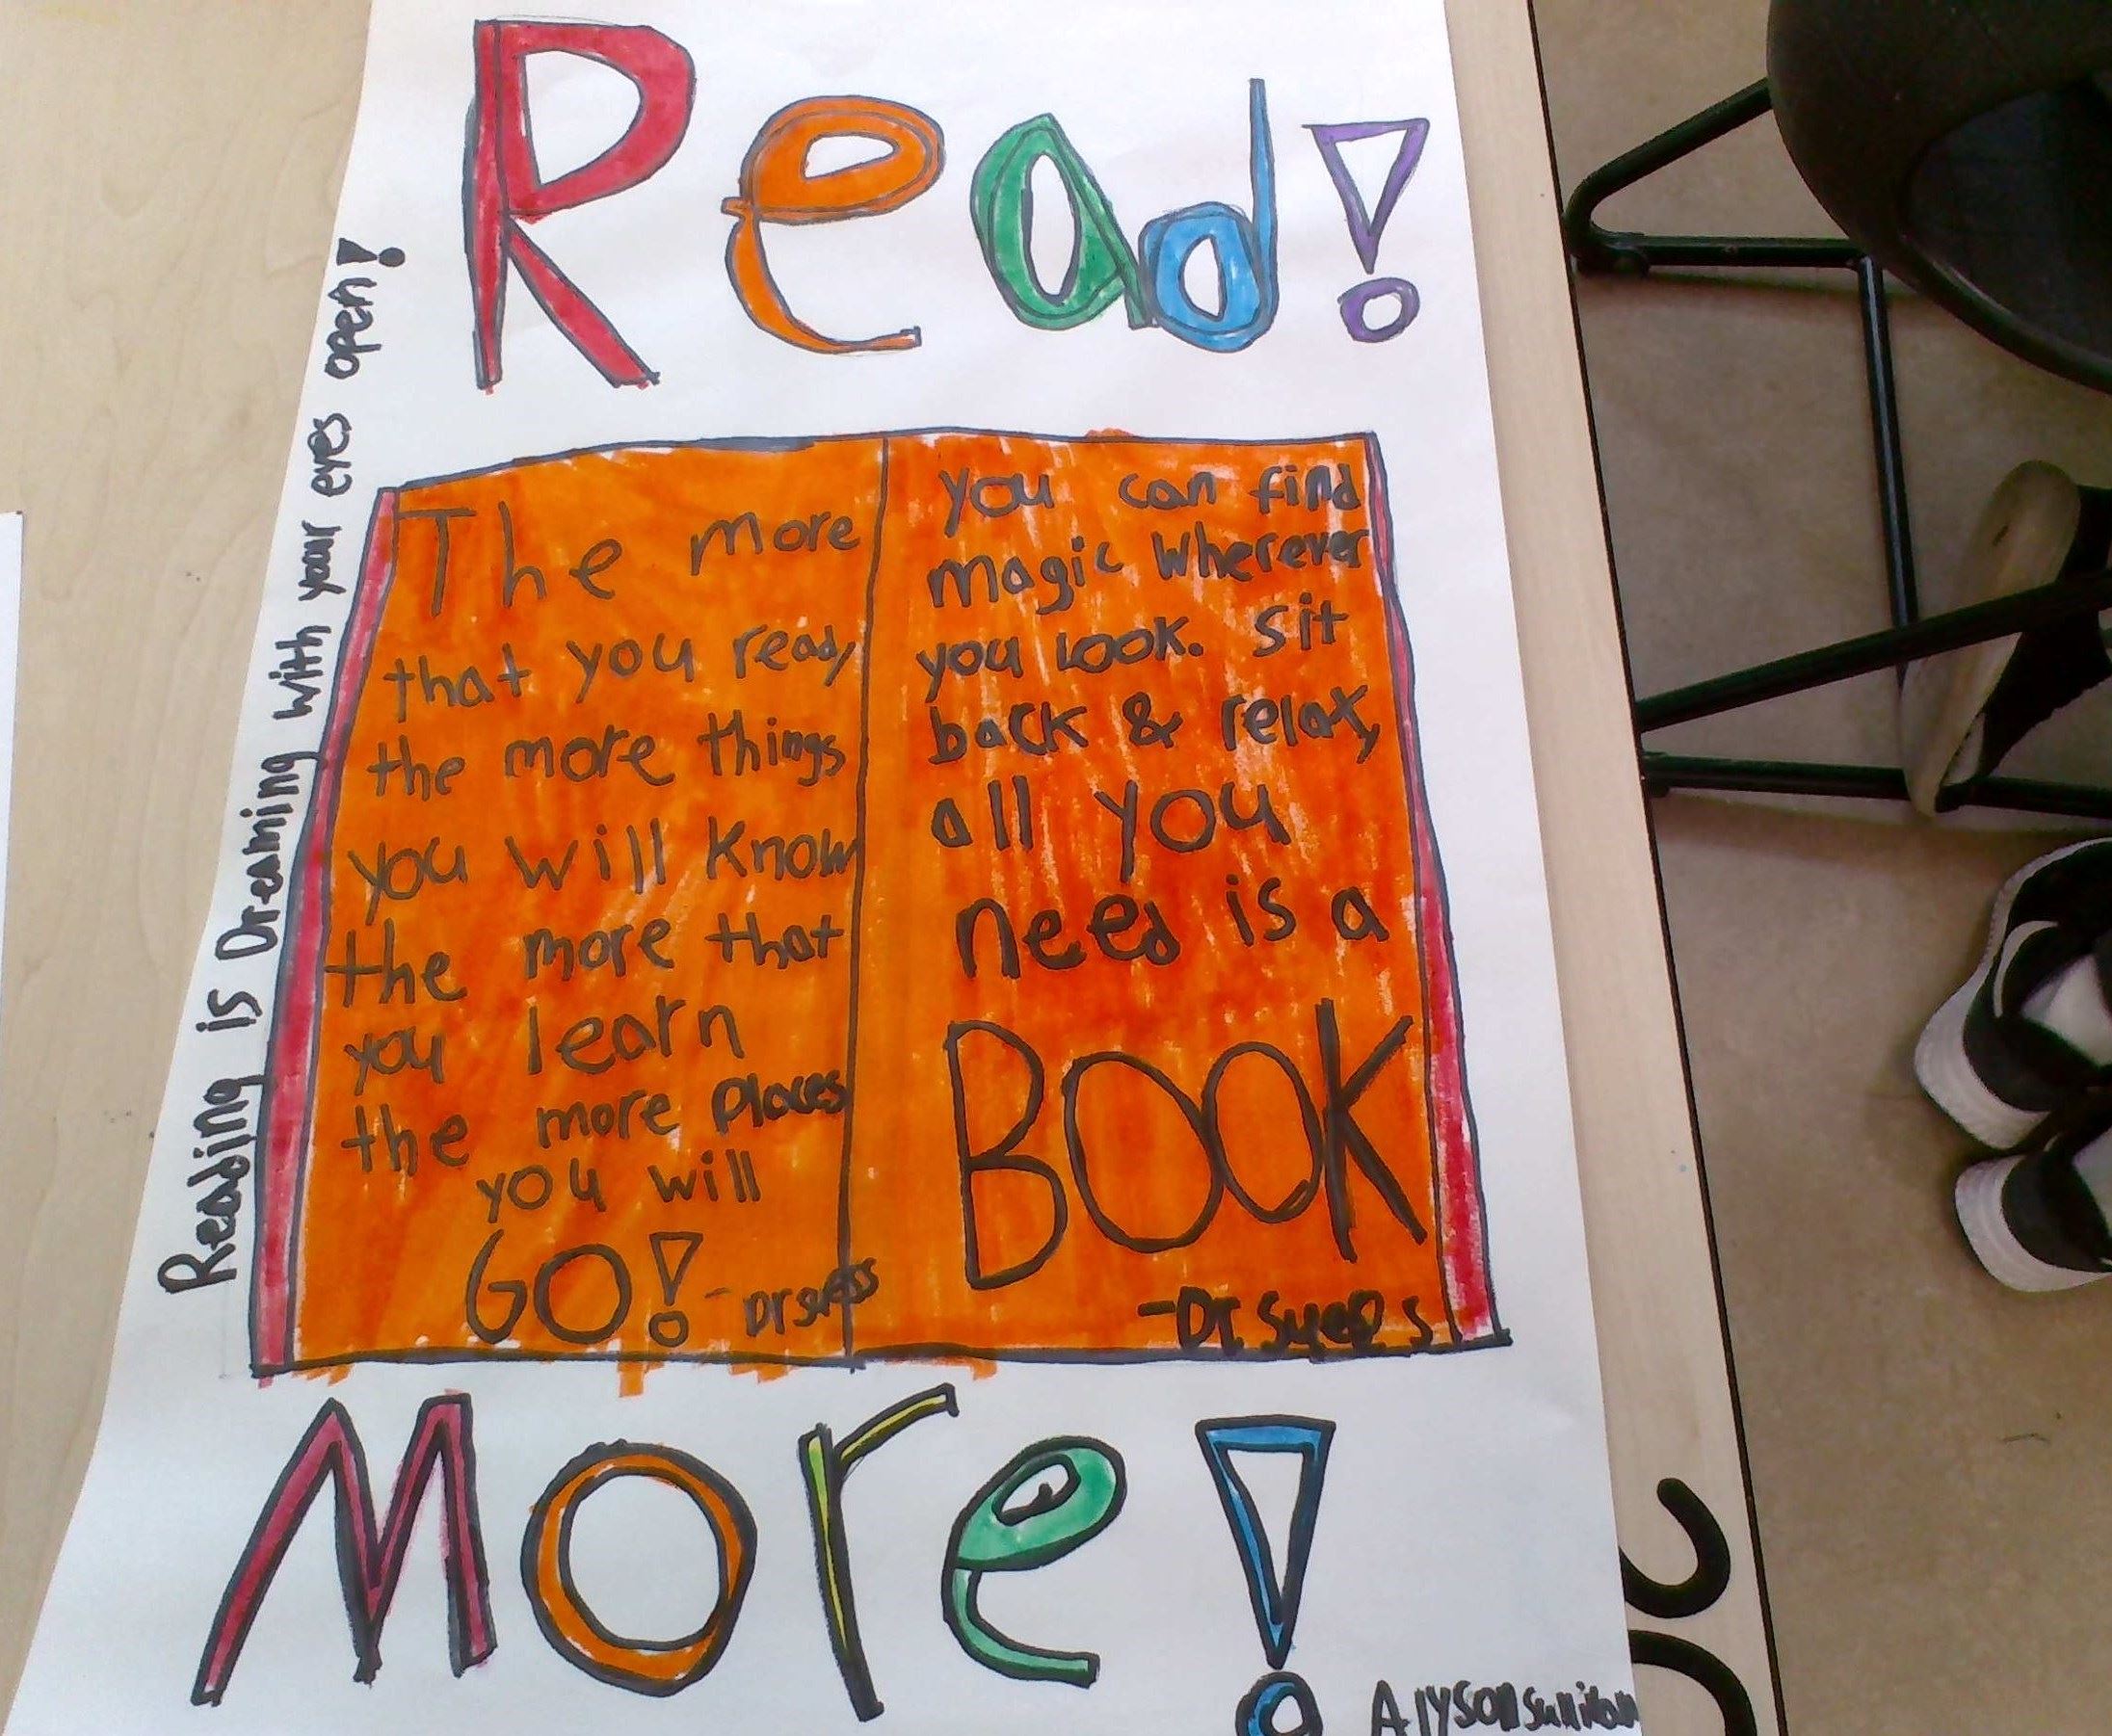 Read!
Reading is Dreaming with your eyes open!
The more
that you read,
the more things
you will know
the more that
you learn
the more places
you will
GO! - Dr suess
you can find
magic wherever
you look. sit
back & relax,
all you
need is a
BOOK
- Dr. Suess
More!
Alyson Sullivan